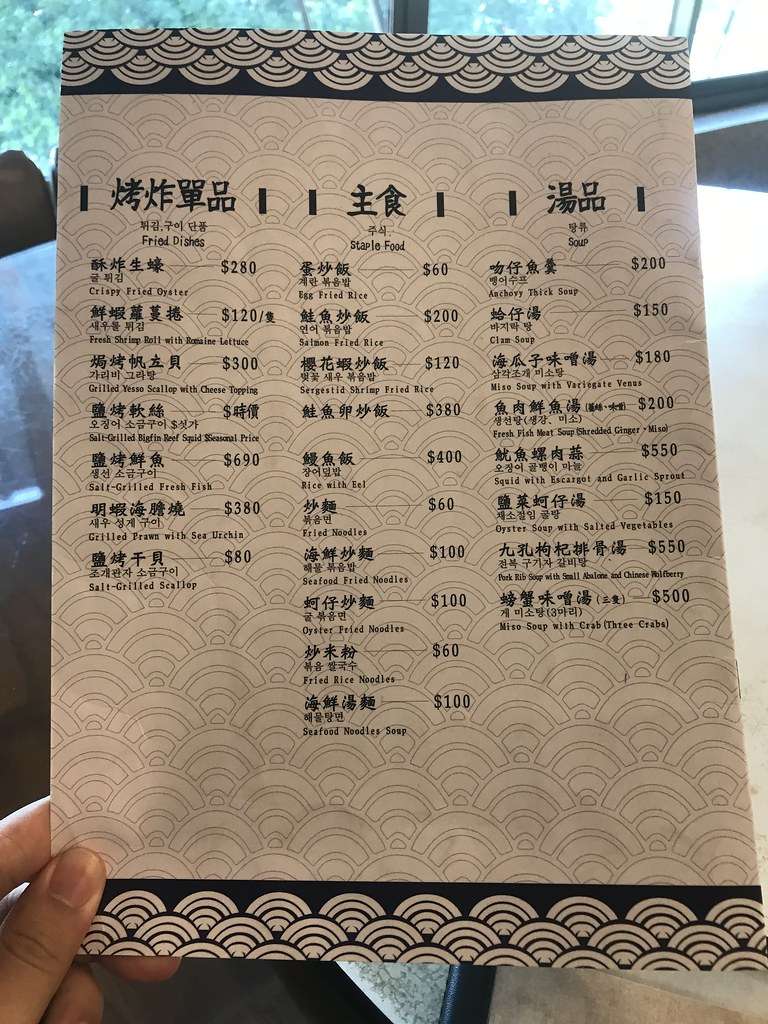 烤炸單品
튀김,구이 단품
Fried Dishes
酥炸生蠔 $280
굴 튀김
Crispy Fried Oyster
鮮蝦蘿蔓捲 $120/隻
새우롤 튀김
Fresh Shrimp Roll with Romaine Lettuce
焗烤帆立貝 $300
가리비 그라탕
Grilled Yesso Scallop with Cheese Topping
鹽烤軟絲 $時價
오징어 소금구이 $싯가
Salt-Grilled Bigfin Reef Squid $Seasonal Price
鹽烤鮮魚 $690
생선 소금구이
Salt-Grilled Fresh Fish
明蝦海膽燒 $380
새우 성게 구이
Grilled Prawn with Sea Urchin
鹽烤干貝 $80
조개관자 소금구이
Salt-Grilled Scallop
主食
주식
Staple Food
蛋炒飯 $60
계란 볶음밥
Egg Fried Rice
鮭魚炒飯 $200
연어 볶음밥
Salmon Fried Rice
櫻花蝦炒飯 $120
벚꽃 새우 볶음밥
Sergestid Shrimp Fried Rice
鮭魚卵炒飯 $380
鰻魚飯 $400
장어덮밥
Rice with Eel
炒麵 $60
볶음면
Fried Noodles
海鮮炒麵 $100
해물 볶음밥
Seafood Fried Noodles
蚵仔炒麵 $100
굴 볶음면
Oyster Fried Noodles
炒米粉 $60
볶음 쌀국수
Fried Rice Noodles
海鮮湯麵 $100
해물탕면
Seafood Noodles Soup
湯品
탕류
Soup
吻仔魚羹 $200
뱅어수프
Anchovy Thick Soup
蛤仔湯 $150
바지락 탕
Clam Soup
海瓜子味噌湯 $180
삼각조개 미소탕
Miso Soup with Variegate Venus
魚肉鮮魚湯(薑絲、味噌) $200
생선탕(생강, 미소)
Fresh Fish Meat Soup(Shredded Ginger、Miso)
魷魚螺肉蒜 $550
오징어 골뱅이 마늘
Squid with Escargot and Garlic Sprout
鹽菜蚵仔湯 $150
채소절임 굴탕
Oyster Soup with Salted Vegetables
九孔枸杞排骨湯 $550
전복 구기자 갈비탕
Pork Rib Soup with Small Abalone and Chinese Wolfberry
螃蟹味噌湯(三隻) $500
게 미소탕(3마리)
Miso Soup with Crab(Three Crabs)